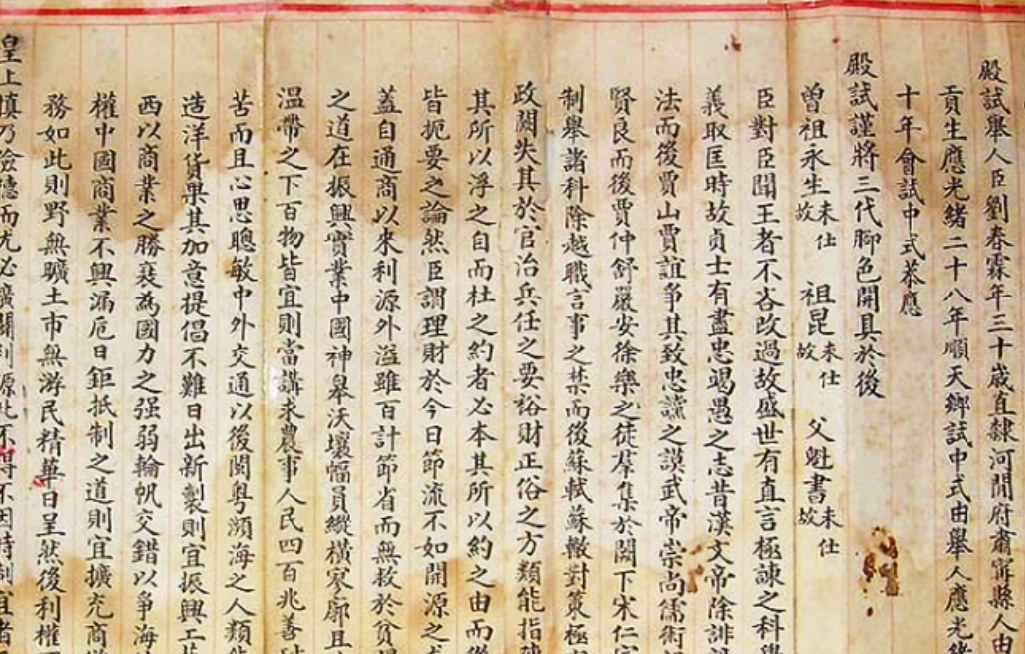 殿試舉人臣劉春霖年三十歲直隸河間府肅寧縣人由
貢生應光緒二十八年順天鄉試中式由舉人應光緒
十年會試中式恭應
殿試謹將三代腳色開具於後
曾祖永生未仕故 祖昆未仕故 父魁書未仕故
臣對臣聞王者不吝改過故盛世有直言極諫之科學
義取匡時故貞士有盡忠竭愚之志昔漢文帝除誹
法而後賈山賈誼爭其致忠讜之謨武帝崇尚儒術
賢良而後賈仲舒嚴安徐樂之徒羣集於闕下宋仁宗
制舉諸科除越職言事之禁而後蘇軾蘇轍對策極
政闕失其於官治兵任之要裕財正俗之方類能指陳
其所以浮之自而杜之約者必本其所以約之由而
皆扼要之論然臣謂理財於今日節流不如開源之
蓋自通商以來利源外溢雖百計節省而無救於貧
之道在振興實業中國神皋沃壤幅員縱橫寥廓且
溫帶之下百物皆宜則當講求農事人民四百兆善
苦而且心思聰敏中外交通以後閩粵瀕海之人類能
造洋貨果其加意提倡不難日出新製則宜振興工
西以商業之勝衰為國力之强弱輪帆交錯以爭海
權中國商業不興漏卮日鉅抵制之道則宜擴充商
務如此則野無曠土市無游民精華日呈然後利權
皇上慎乃儉德而尤必廣開利源此不得不因時制宜者